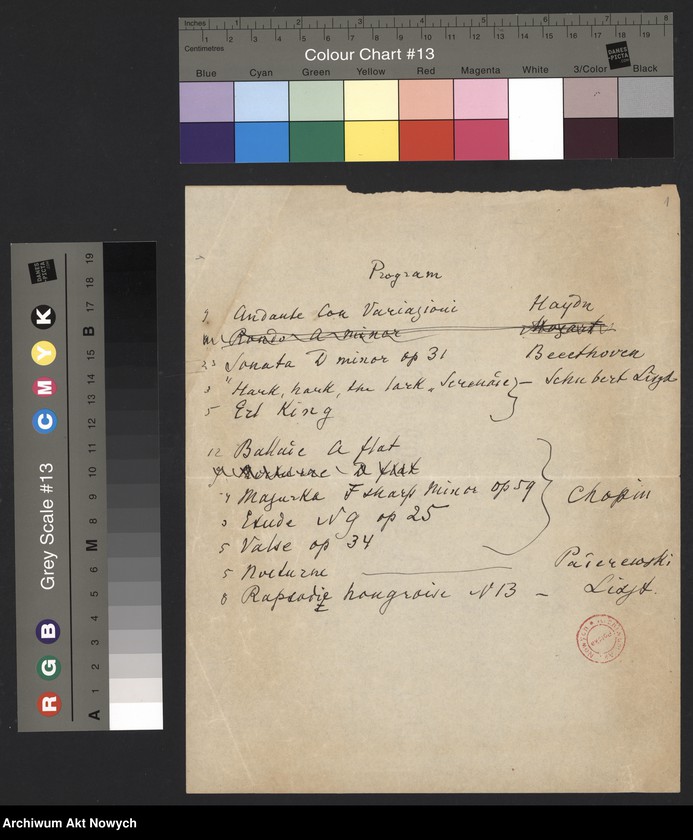 Inches 1 2 3 4 5 6 7 8
Centimetres 1 2 3 4 5 6 7 8 9 10 11 12 13 14 15 16 17 18 19
Colour Chart #13
DANES PICTA
Blue Cyan Green Yellow Red Magenta White 3/Color Black
1
Program
Andante Con Variazioni Haydn
Rondo A minor Mozart
Sonata D minor op 31 Beeethoven
3 "Hark, hark, the lark" Serenade – Schubert Liszt
5 Erl King
12 Ballade A flat
Nocturne D flat
Mazurka F sharp Minor op 59 Chopin
3 Etude N 9 op 25
5 Valse op 34
5 Nocturne — Paderewski
8 Rapsodie hongroise N 13 – Liszt.
Grey Scale #13
R G B C M Y K
A 1 2 3 4 5 6 M 8 9 10 11 12 13 14 15 B 17 18 19
DANES PICTA
Archiwum Akt Nowych